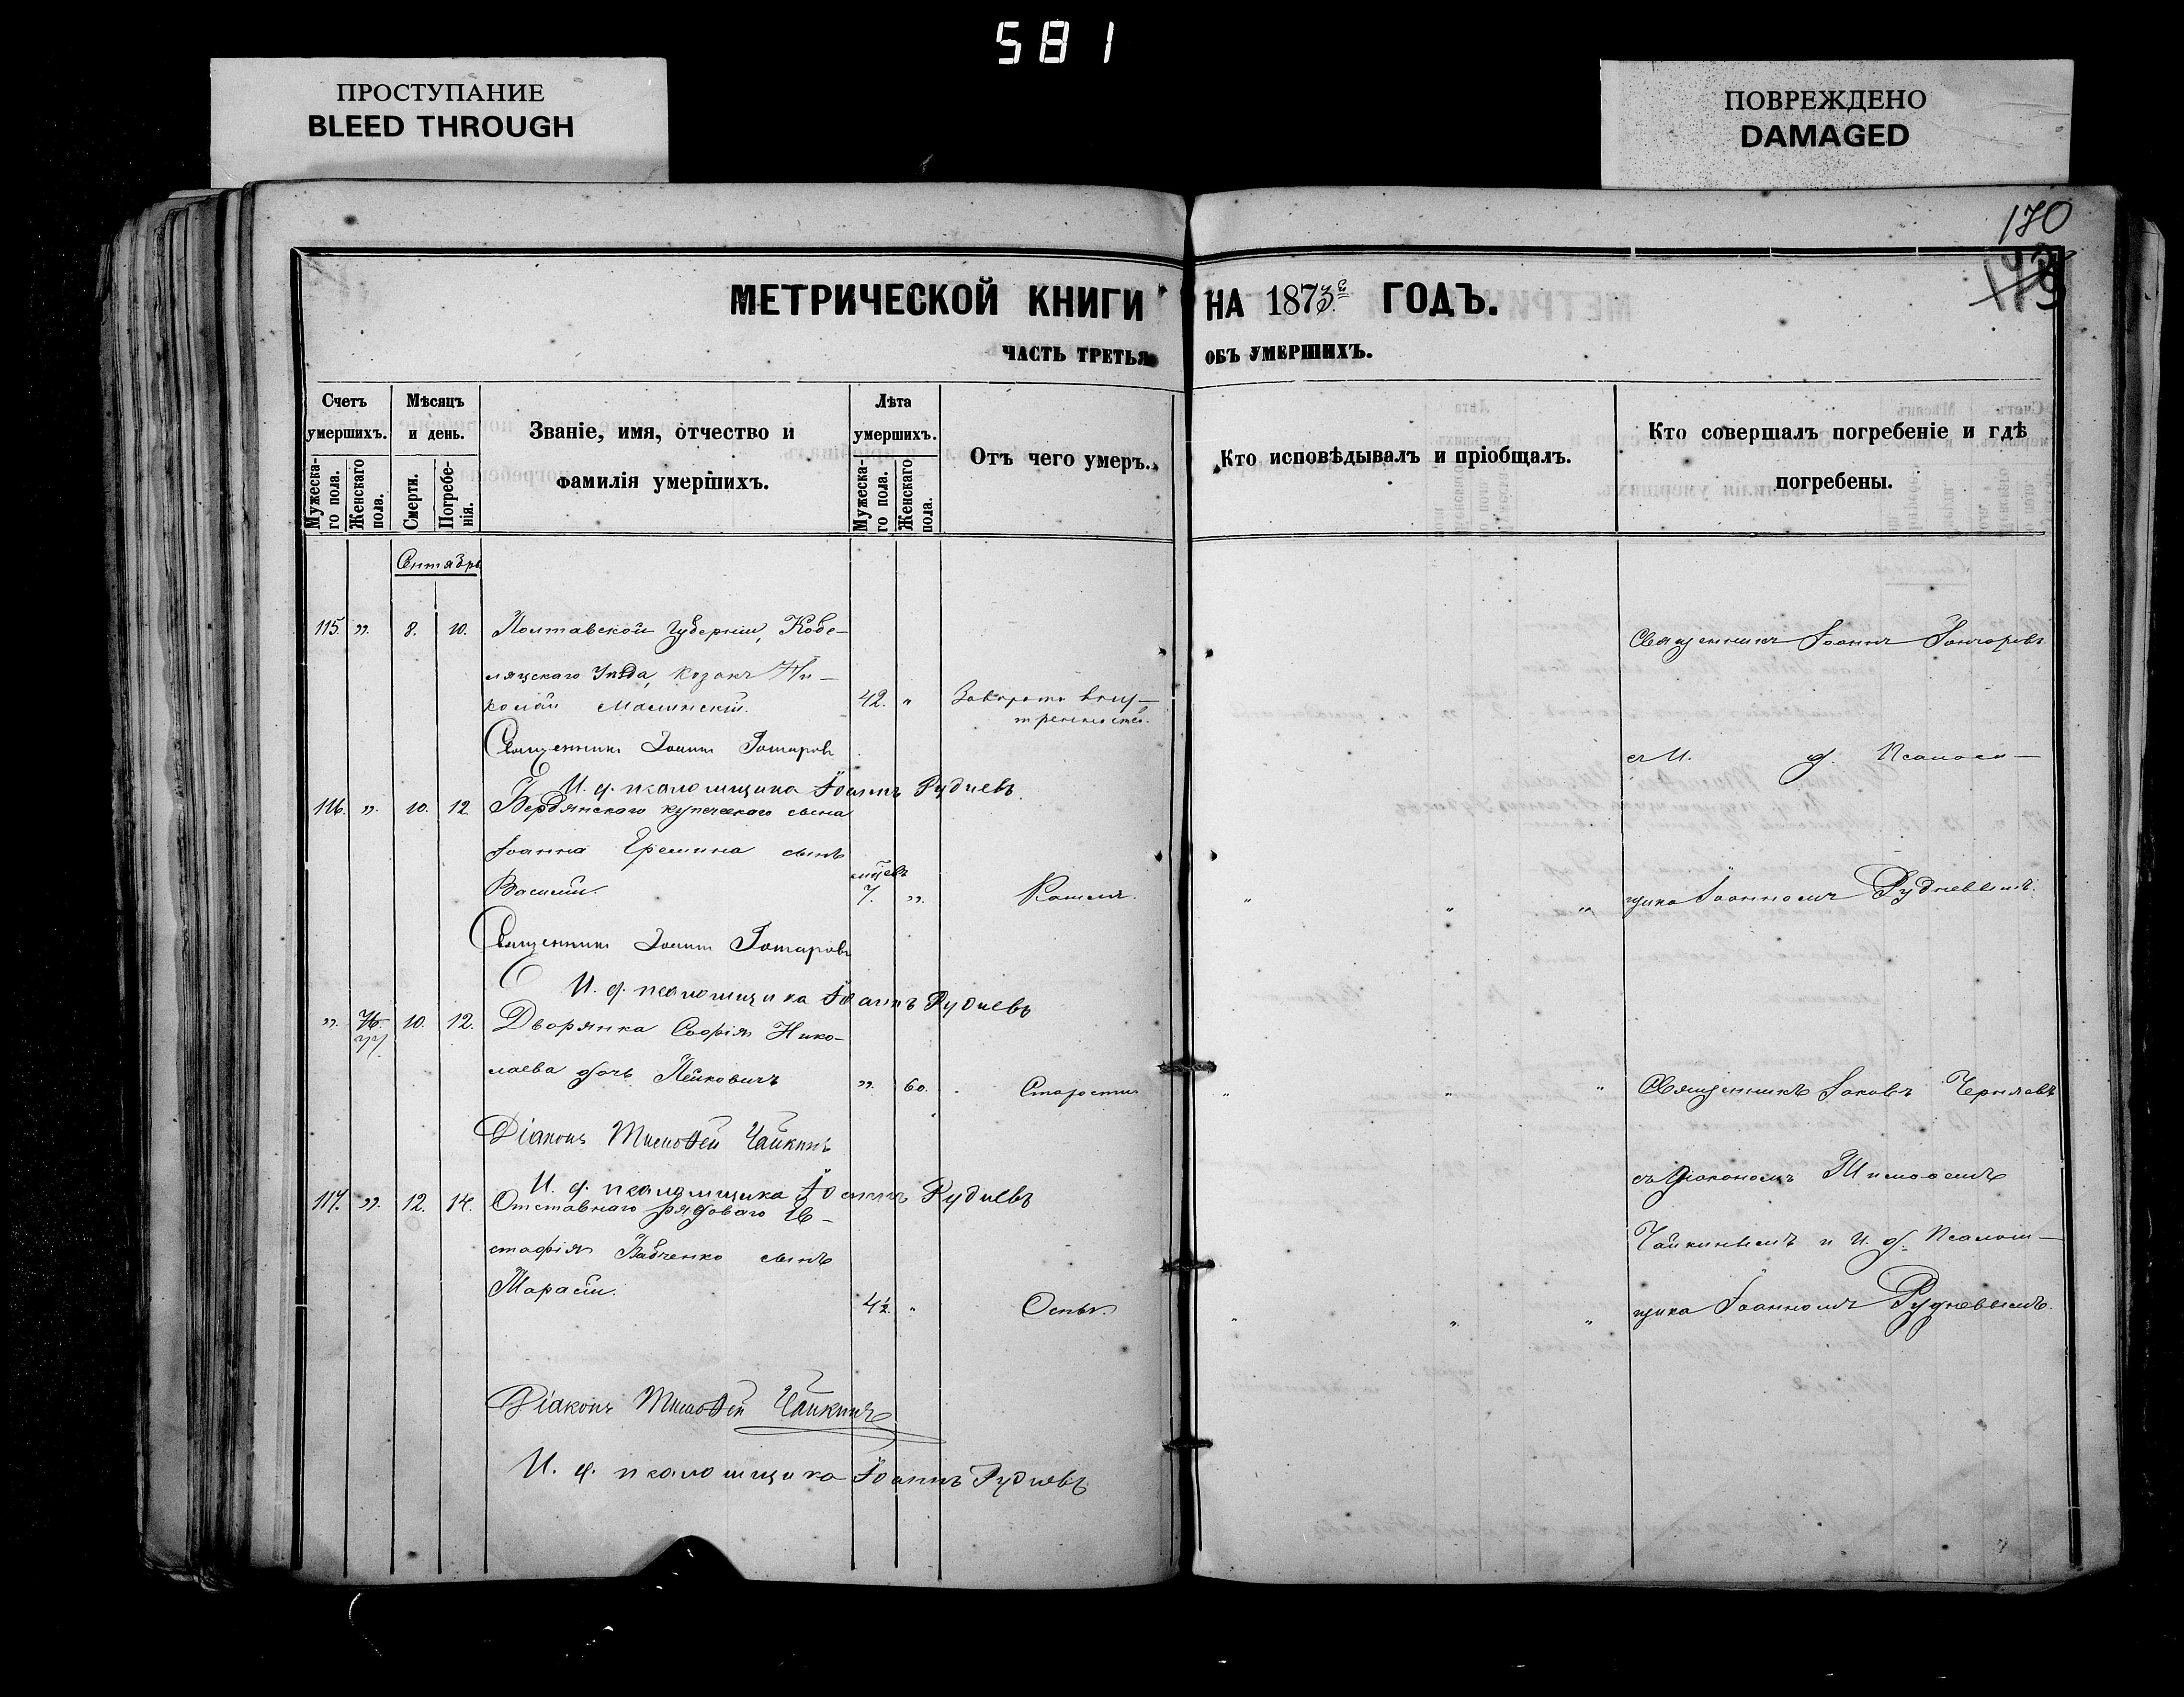 581
ПРОСТУПАНИЕ
BLEED THROUGH
ПОВРЕЖДЕНО
DAMAGED
170
МЕТРИЧЕСКОЙ КНИГИ НА 1873 ГОДЪ.
ЧАСТЬ ТРЕТЬЯ ОБЪ УМЕРШИХЪ.
Счетъ умершихъ.
Мужеска-го пола.
Женскаго пола.
Мѣсяцъ и день.
Смерти.
Погребе-нія.
Званіе, имя, отчество и
фамилія умершихъ.
Лѣта умершихъ.
Мужеска-го пола.
Женскаго пола.
Отъ чего умеръ.
Кто исповѣдывалъ и пріобщалъ.
Кто совершалъ погребеніе и гдѣ
погребены.
Сентябрь
115. „ 8. 10. Полтавской Губерніи, Кобе-
ляцскаго Уѣзда, Козакъ Ни-
колай Малинскій. 42. „ Заворота внут-
тренностей.
Священникъ Іоаннъ Гончаровъ
Священникъ Іоаннъ Гончаровъ
съ И. д. Псалом-
И. д. псаломщика Іоаннъ Рудневъ.
116. „ 10. 12. Бердянскаго купеческаго сына
Іоанна Еремина сынъ
Василій. 7. „ Кашель. „ „ „
щика Іоанномъ Рудневымъ.
Священникъ Іоаннъ Гончаровъ
И. д. псаломщика Іоаннъ Рудневъ
„ 76. 77. 10. 12. Дворянка Софія Нико-
лаева дочь Пейковичъ „ 60. Старости „ „ „
Священникъ Іаковъ Чернявъ
Діаконъ Тимоѳей Чайкинъ
съ Діакономъ Тимоѳеемъ
И. д. псаломщика Іоаннъ Рудневъ
117. „ 12. 14. Отставнаго рядоваго Ев-
стафія Бабченко сынъ
Чайкинымъ и И. д. Псалом-
Тарасій. 4½ „ Оспы. „ „ „
щика Іоанномъ Рудневымъ.
Діаконъ Тимоѳей Чайкинъ
И. д. псаломщика Іоаннъ Рудневъ